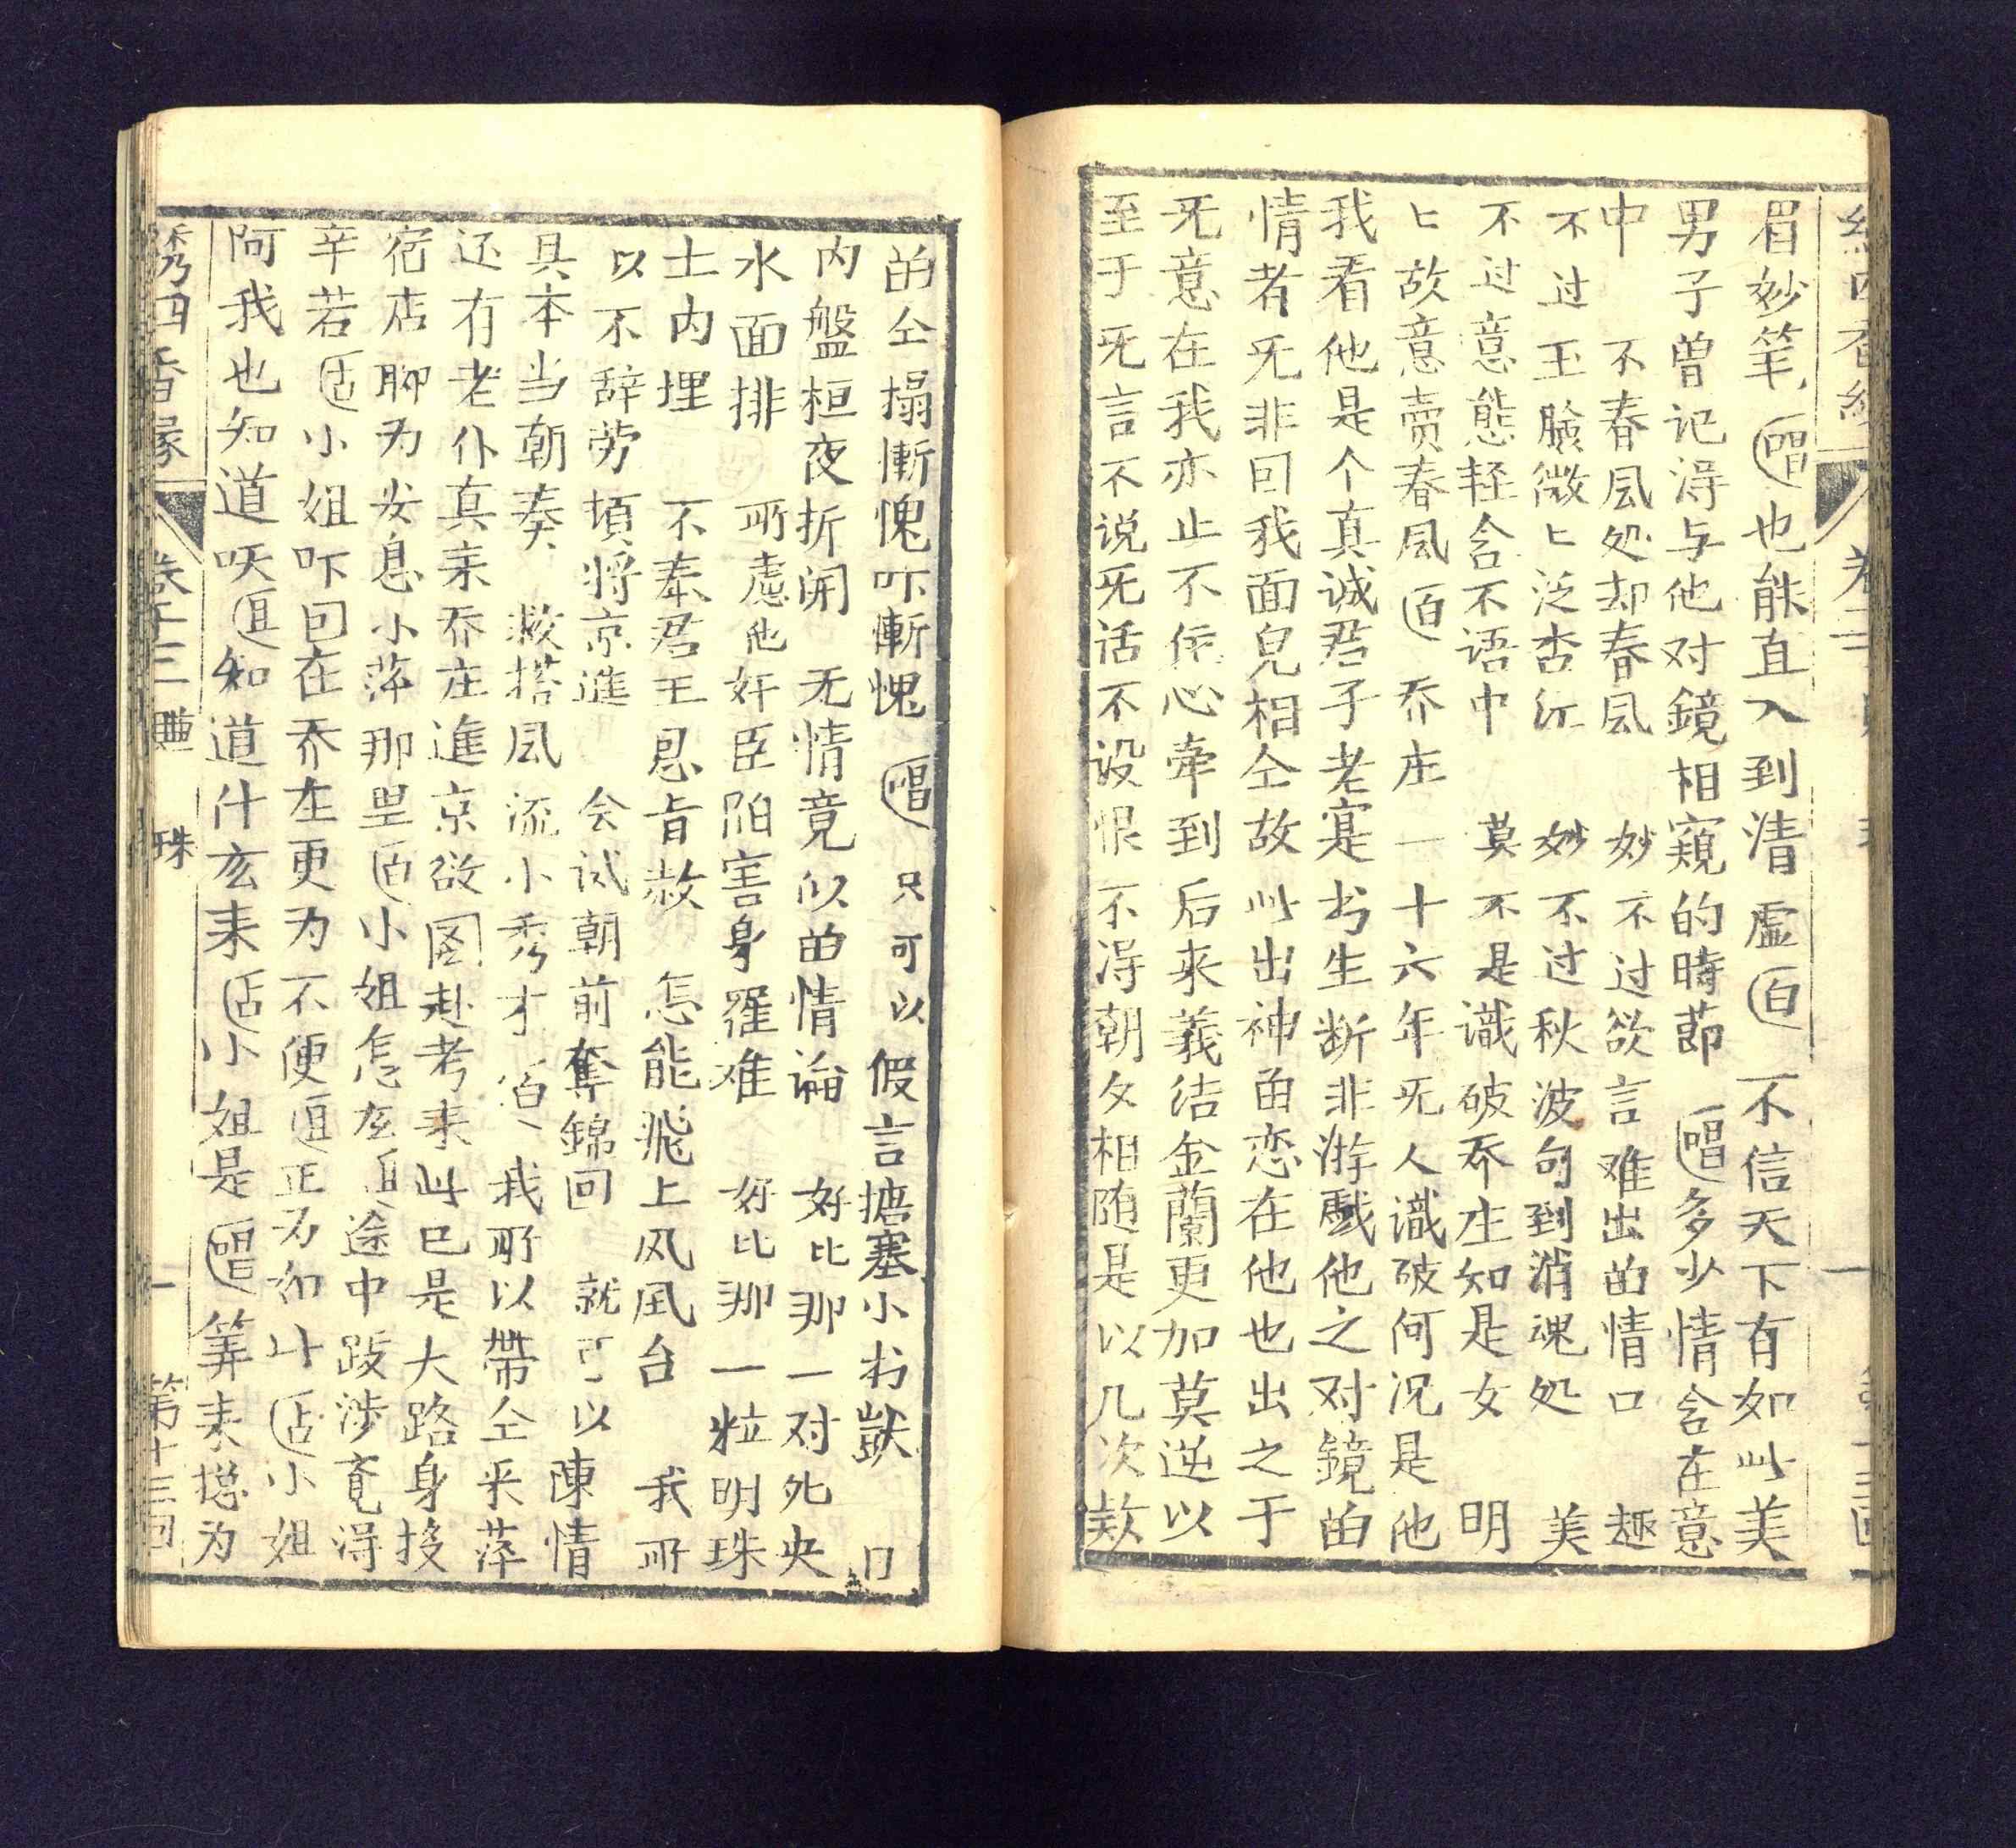 眉妙笔唱也能直入到清虚白不信天下有如此美
男子曾记淂与他对鏡相窺的時節唱多少情含在意
中不春凨处却春凨妙不过欲言难出的情口趣
不过玉臉微〻泛杏红妙不过秋波句到消魂处美
不过意態轻含不语中莫不是識破乔庄如是女明
〻故意卖春凨白乔庄一十六年旡人識破何况是他
我看他是个真诚君子老寔书生断非游戱他之对鏡的
情者旡非回我面皃相仝故此出神留恋在他也出之于
旡意在我亦止不住心牵到后来義结金蘭更加莫逆以
至于旡言不说旡话不设恨不淂朝夕相随是以几次欵
的仝搨慚愧吓慚愧唱只可以假言搪塞小书獃口
内盤桓夜折開无情竟似的情論好比那一对死央
水面排所慮他奸臣陷害身羅难好比那一粒明珠
土内埋不奉君王恩旨赦怎能飛上风凨台我所
以不辞劳頓将京進会试朝前奪錦回就可以陳情
具本当朝奏救搭凨流小秀才白我所以帶仝来萍
还有老仆真来乔庄進京欲图赴考来此已是大路身投
宿店聊为安息小萍那里白小姐怎庅旦途中跋涉竟淂
辛若占小姐吓回在乔庄更为不便旦正为如此占小姐
阿我也知道呅旦知道什庅来占小姐是唱筭来揔为
綉四香緣
卷十三
珠
一
第十三回